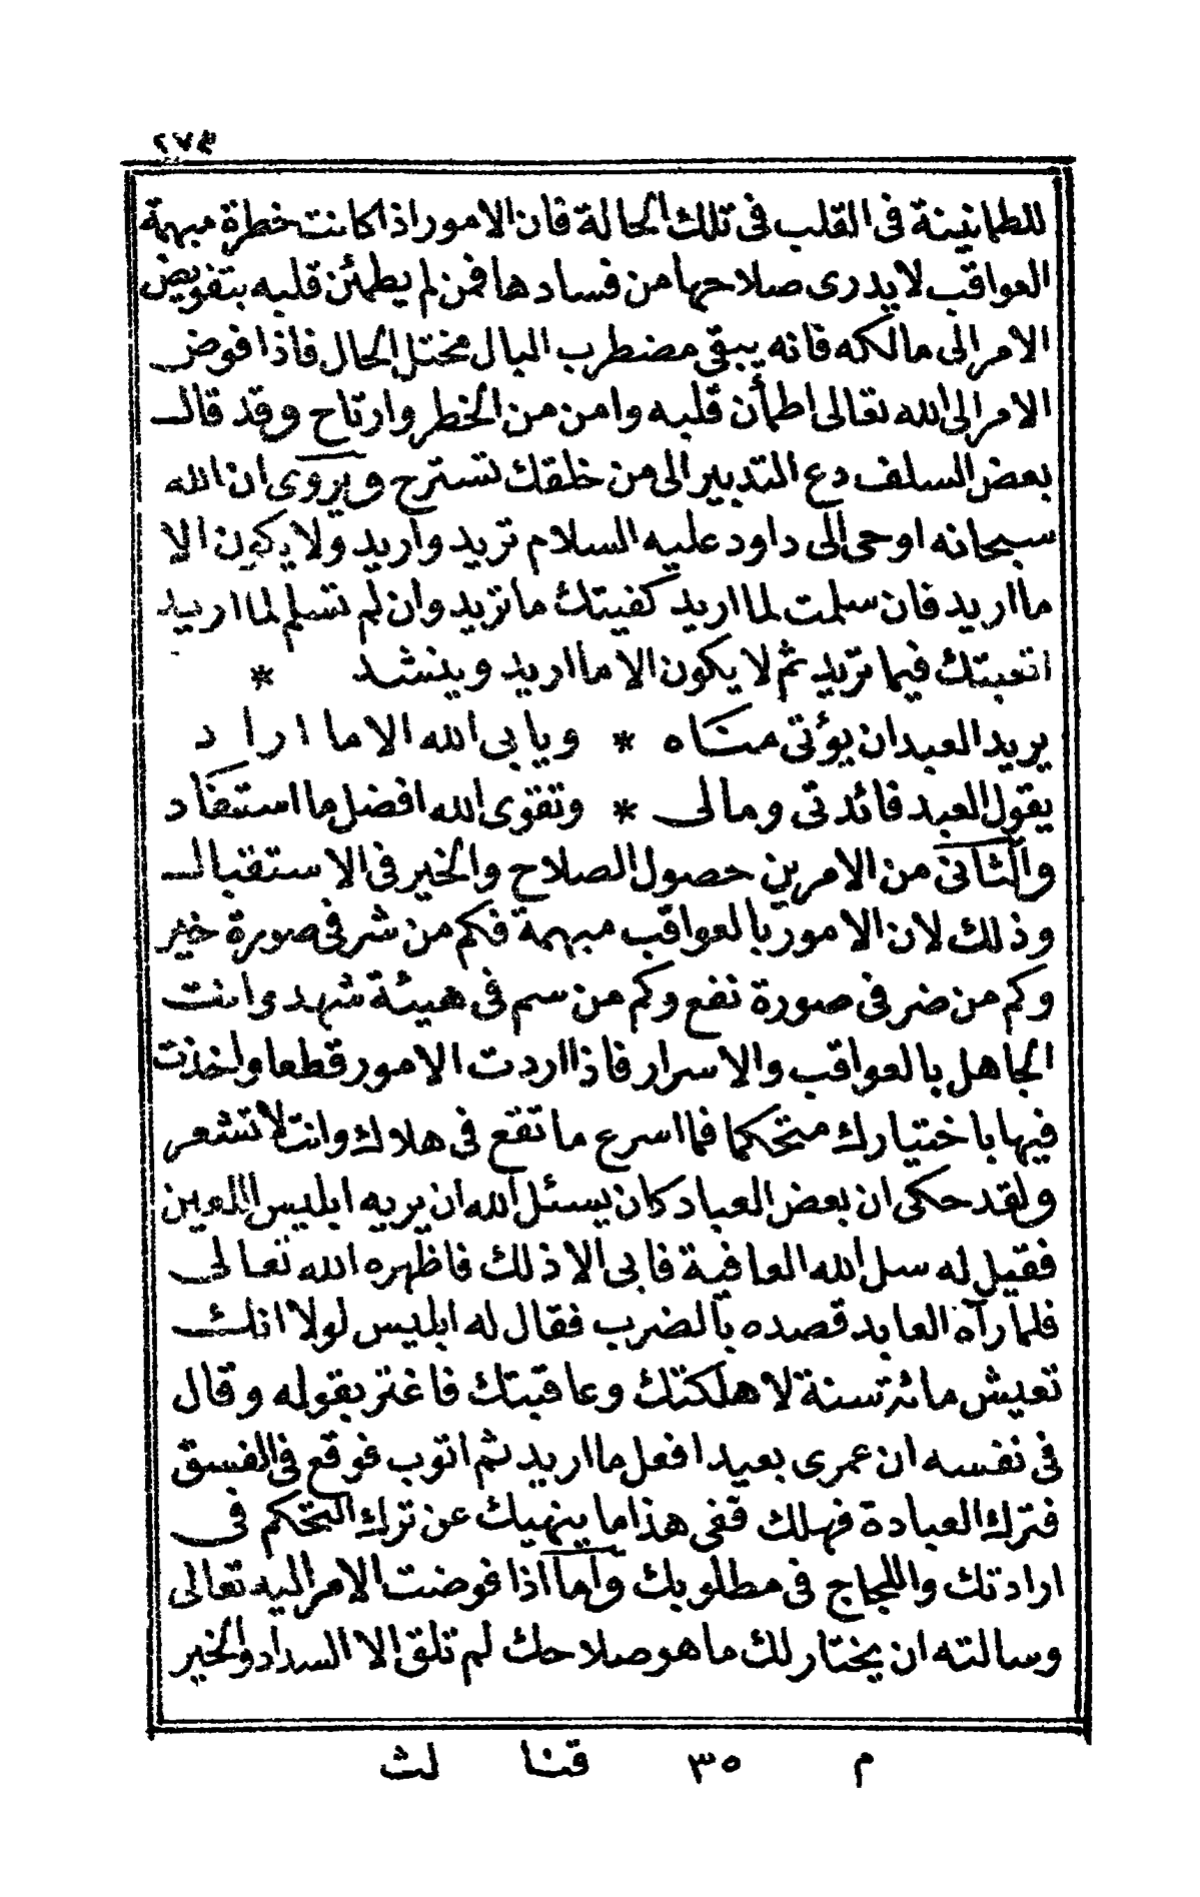 ٢٧٣
للطمانينة فى القلب فى تلك الحالة فان الامور اذا كانت خطرة مبهمة
العواقب لا يدرى صلاحها من فسادها فمن لم يطمئن قلبه بتفويض
الامر الى مالكه فانه يبقى مضطرب البال مختل الحال فاذا فوض
الامر الى الله تعالى اطمأن قلبه وامن من الخطر وارتاح وقد قال
بعض السلف دع التدبير الى من خلقك تسترح ويروى ان الله
سبحانه اوحى الى داود عليه السلام تريد واريد ولا يكون الا
ما اريد فان سلمت لما اريد كفيتك ما تريد وان لم تسلم لما اريد
اتعبتك فيما تريد ثم لا يكون الا ما اريد وينشد *
يريد العبد ان يؤتى مناه * ويابى الله الا ما اراد
يقول العبد فائدتى ومالى * وتقوى الله افضل ما استفاد
والثانى من الامرين حصول الصلاح والخير فى الاستقبال
وذلك لان الامور بالعواقب مبهمة فكم من شر فى صورة خير
وكم من ضر فى صورة نفع وكم من سم فى هيئة شهد وانت
الجاهل بالعواقب والاسرار فاذا اردت الامور قطعا واخذت
فيها باختيارك متحكما فما اسرع ما تقع فى هلاك وانت لا تشعر
ولقد حكى ان بعض العباد كان يسئل الله ان يريه ابليس اللعين
فقيل له سل الله العافية فابى الا ذلك فاظهره الله تعالى
فلما رآه العابد قصده بالضرب فقال له ابليس لولا انك
تعيش مائة سنة لاهلكتك وعاقبتك فاغتر بقوله وقال
فى نفسه ان عمرى بعيد افعل ما اريد ثم اتوب فوقع فى الفسق
فترك العبادة فهلك ففى هذا ما ينهيك عن ترك التحكم فى
ارادتك واللجاج فى مطلوبك واما اذا فوضت الامر اليه تعالى
وسالته ان يختار لك ما هو صلاحك لم تلق الا السداد والخير
م ٣٥ قنا لث